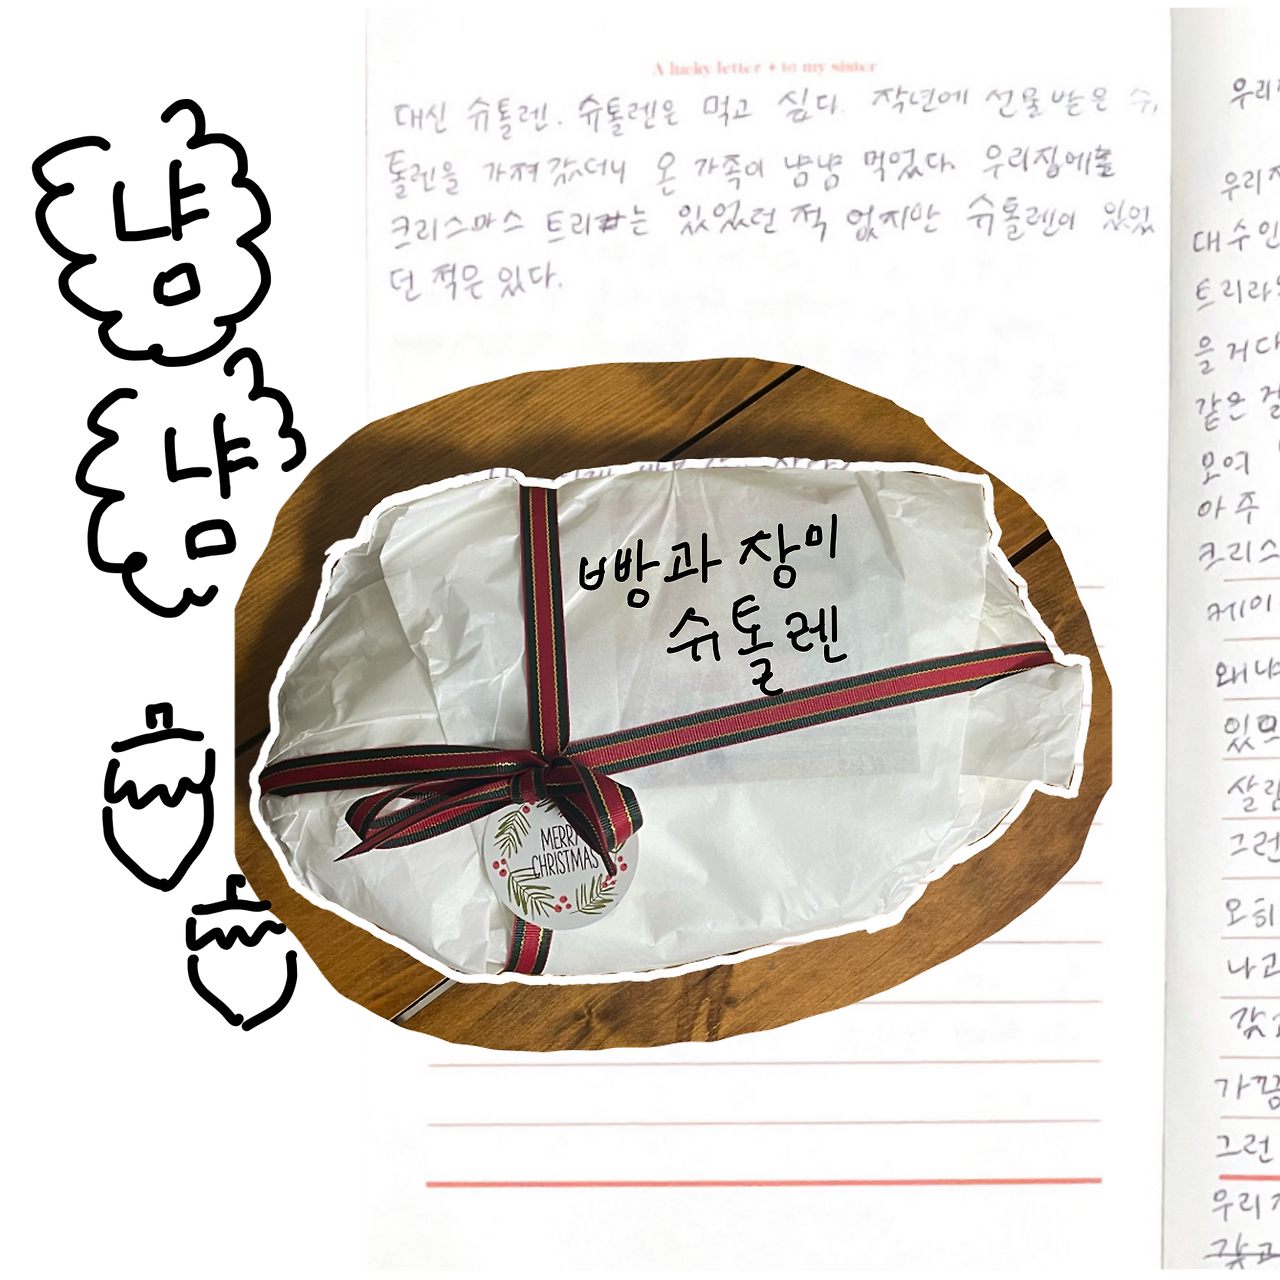 A lucky letter + to my sister
대신 슈톨렌. 슈톨렌은 먹고 싶다. 작년에 선물받은 슈
톨렌을 가져갔더니 온 가족이 냠냠 먹었다. 우리집에
크리스마스 트리는 있었던 적 없지만 슈톨렌이 있었
던 적은 있다.
냠
냠
빵과 장미
슈톨렌
MERRY
CHRISTMAS
우리
우리
대수인
트리라
을 거다
같은
모여
아주
크리스
케이
왜냐
있
살림
그런
오히
나고
갖고
가끔
그런
우리
갖고